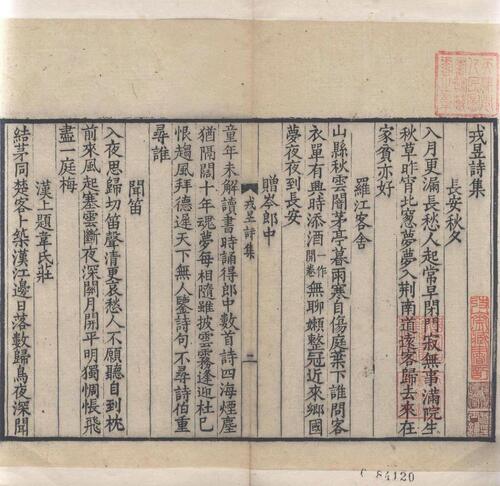 戎昱詩集
長安秋夕
八月更漏長愁人起常早閉門寂無事滿院生
秋草昨宵北窻夢夢入荊南道遠客歸去來在
家貧亦好
羅江客舍
山縣秋雲闇茅亭暮雨寒自傷庭葉下誰問客
衣單有興時添酒一作開卷無聊嬾整冠近來鄉國
夢夜夜到長安
贈岑郎中
戎昱詩集 二
童年未解讀書時誦得郎中數首詩四海煙塵
猶隔闊十年魂夢每相隨雖披雲霧逢迎杜已
恨趨風拜德遲天下無人鑒詩句不尋詩伯重
尋誰
聞笛
入夜思歸切笛聲清更哀愁人不願聽自到枕
前來風起塞雲斷夜深關月開平明獨惆悵飛
盡一庭梅
漢上題韋氏莊
結茅同楚客卜築漢江邊日落數歸鳥夜深聞
C 84120